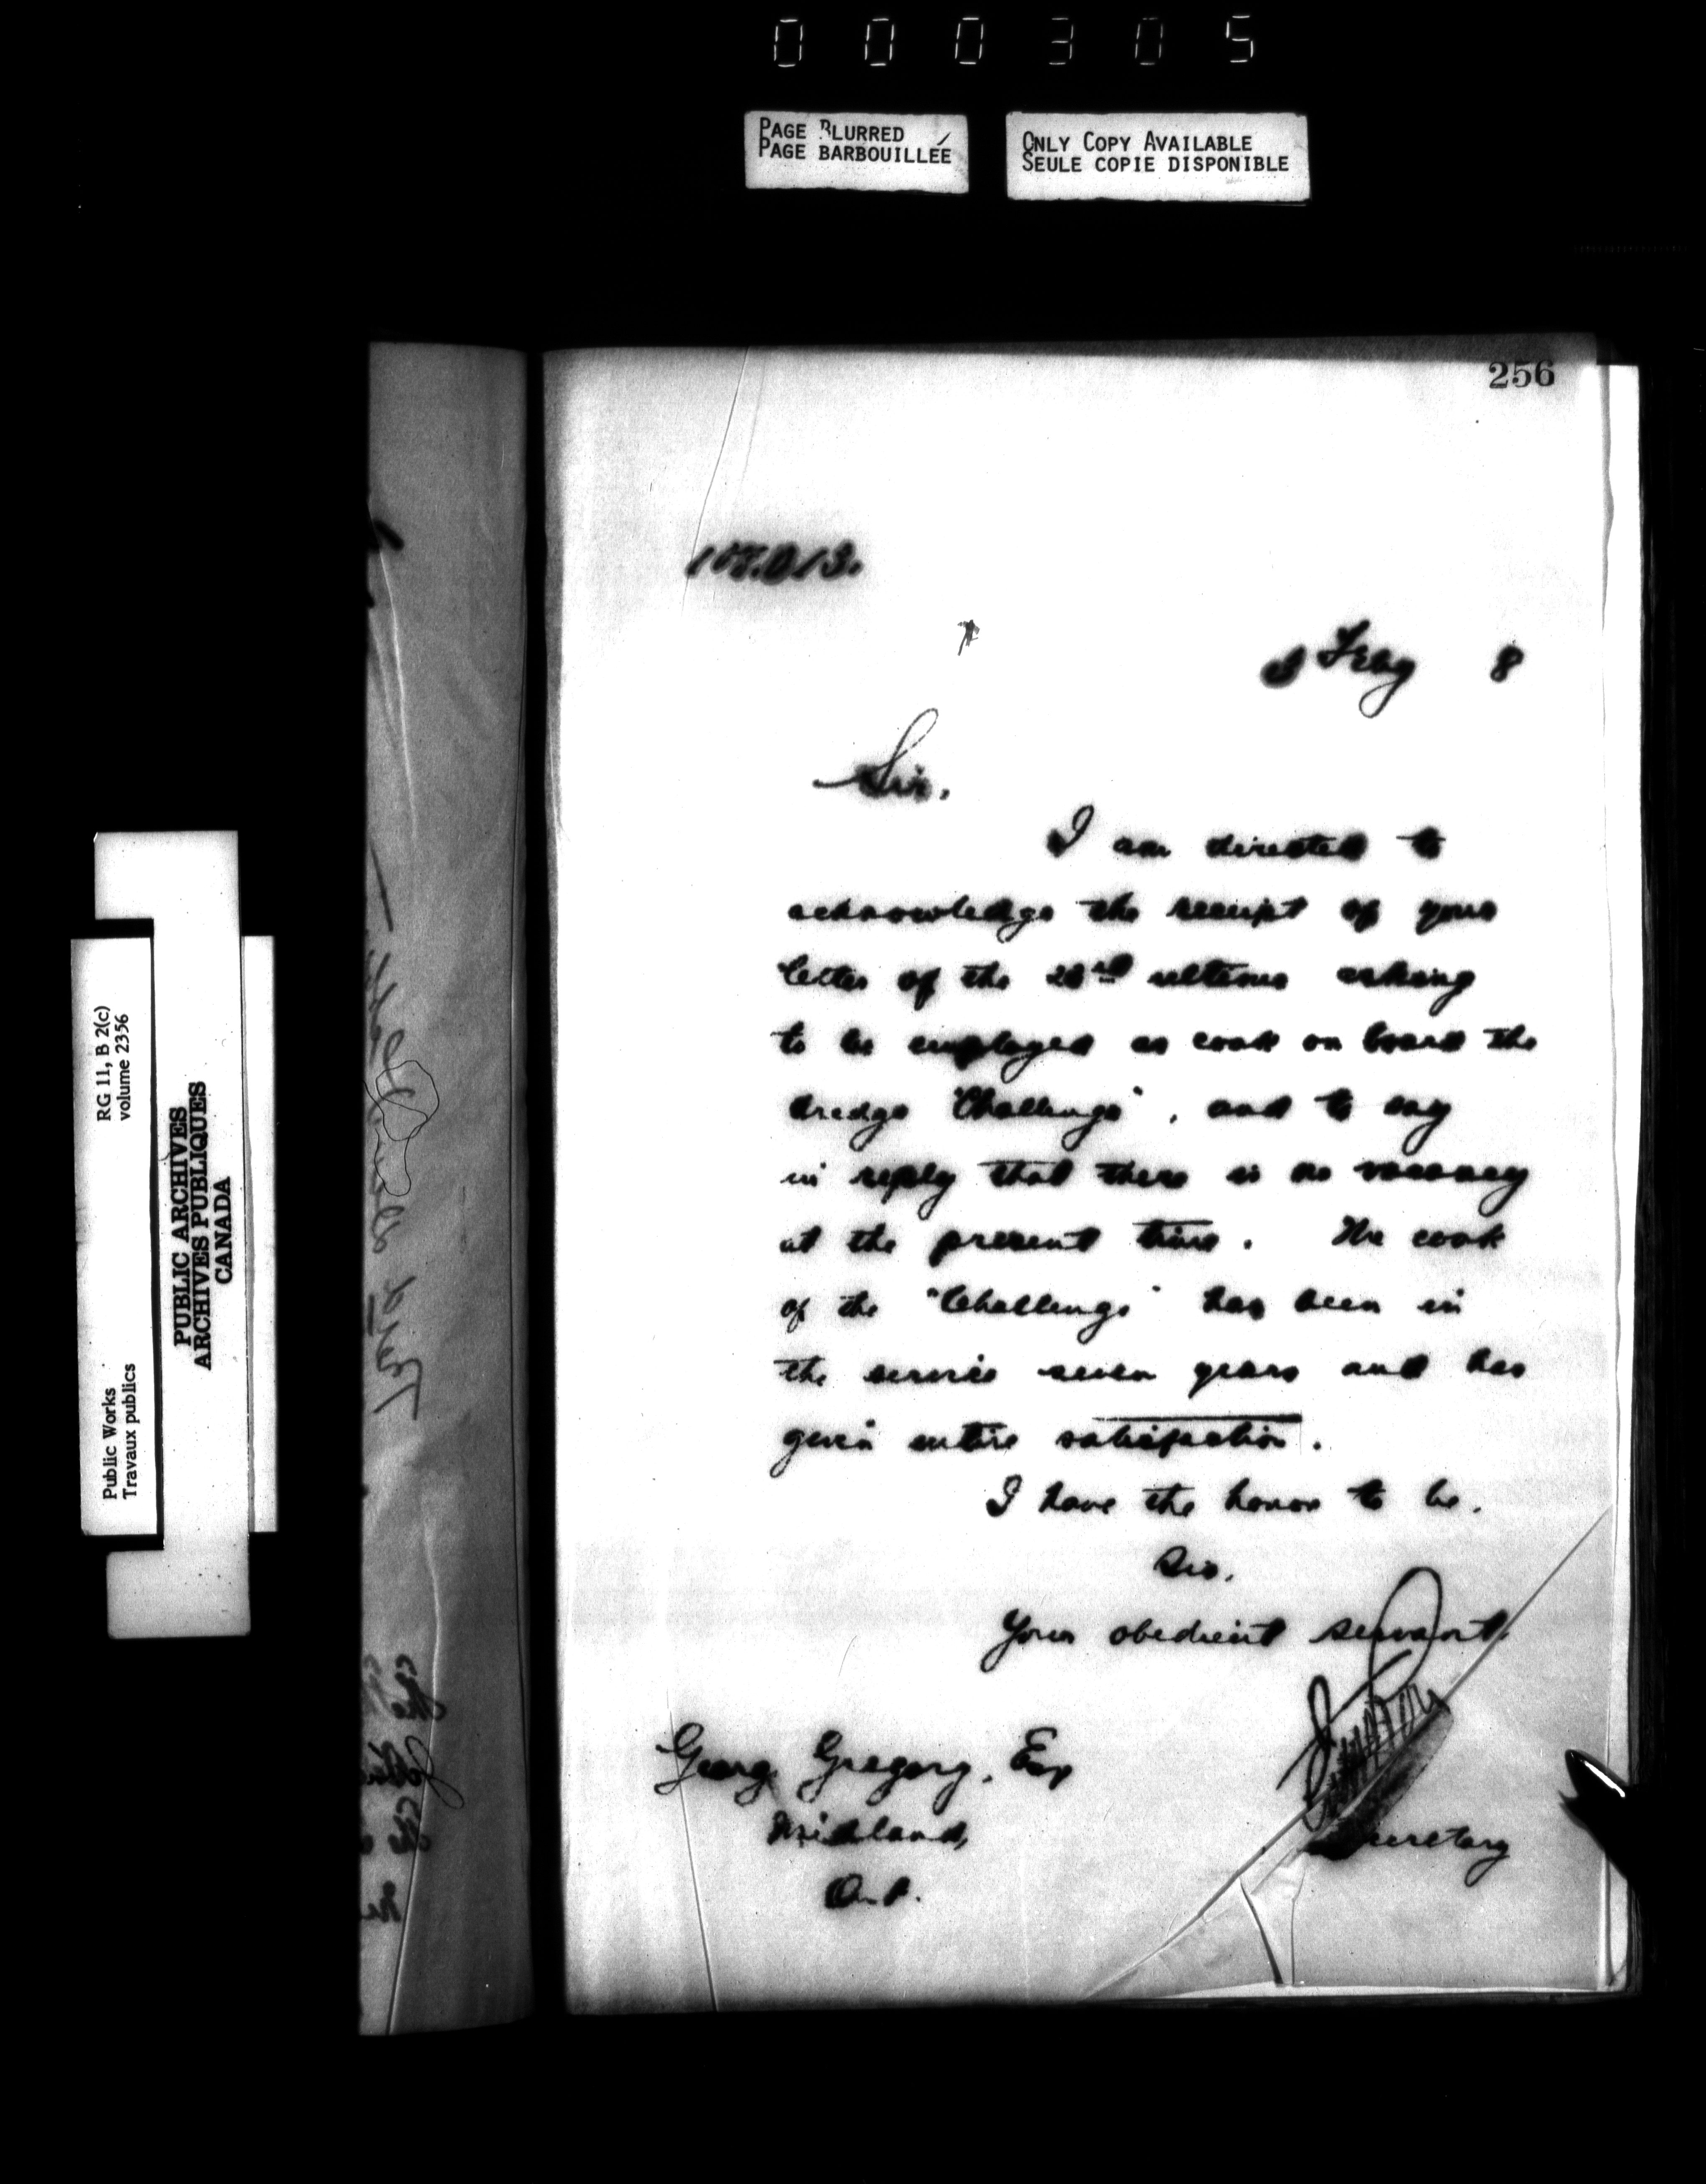 000305
PAGE BLURRED
PAGE BARBOUILLÉE
ONLY COPY AVAILABLE
SEULE COPIE DISPONIBLE
256
Feby 8
Sir,
I am directed to
acknowledge the receipt of your
letter of the ultimo asking
to be employed as cook on board the
dredge "Challenge", and to say
in reply that there is no vacancy
at the present time. The cook
of the "Challenge" has been in
the service seven years and has
given entire satisfaction.
I have the honor to be.
Sir.
Your obedient servant
Secretary
George Gregory, Esq
Midland,
Ont.
RG 11, B 2(c)
volume 2356
Public Works
Travaux publics
PUBLIC ARCHIVES
ARCHIVES PUBLIQUES
CANADA